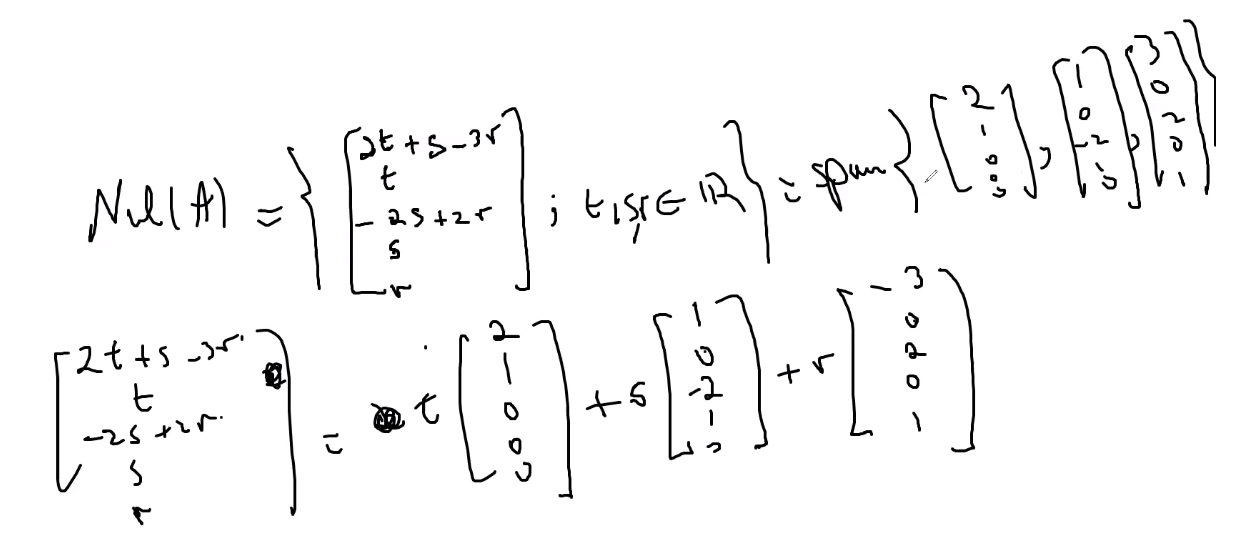 Nul(A) = { [2t+s-3r; t; -2s+2r; s; r] ; t,s,r ∈ ℝ } = span { [2; 1; 0; 0; 0], [1; 0; -2; 1; 0], [3; 0; 2; 0; 1] }
[2t+s-3r; t; -2s+2r; s; r] = t [2; 1; 0; 0; 0] + s [1; 0; -2; 1; 0] + r [-3; 0; 2; 0; 1]